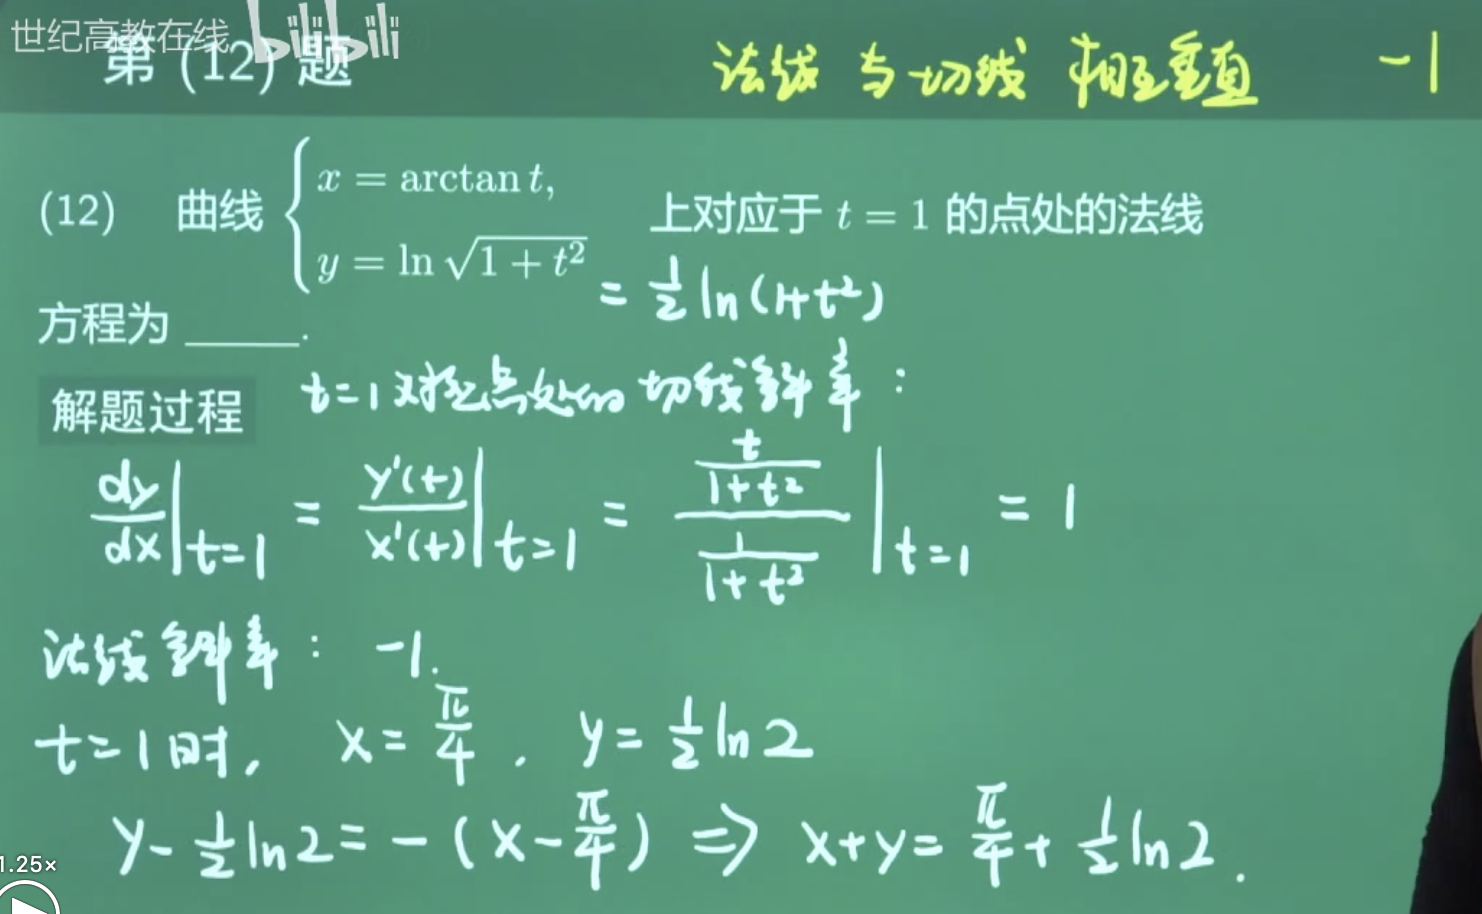 世纪高教在线 bilibili
第 (12) 题
法线 与 切线 相互垂直 -1
(12) 曲线 { x = arctan t, y = ln √(1 + t²) 上对应于 t = 1 的点处的法线
= 1/2 ln(1+t²)
方程为 ______.
解题过程 t=1 对应点处的 切线斜率:
dy/dx|t=1 = y'(t)/x'(t)|t=1 = (t/(1+t²))/(1/(1+t²))|t=1 = 1
法线斜率: -1.
t=1时, x=π/4, y=1/2 ln2
y-1/2 ln2=-(x-π/4) ⇒ x+y=π/4+1/2 ln2.
1.25×